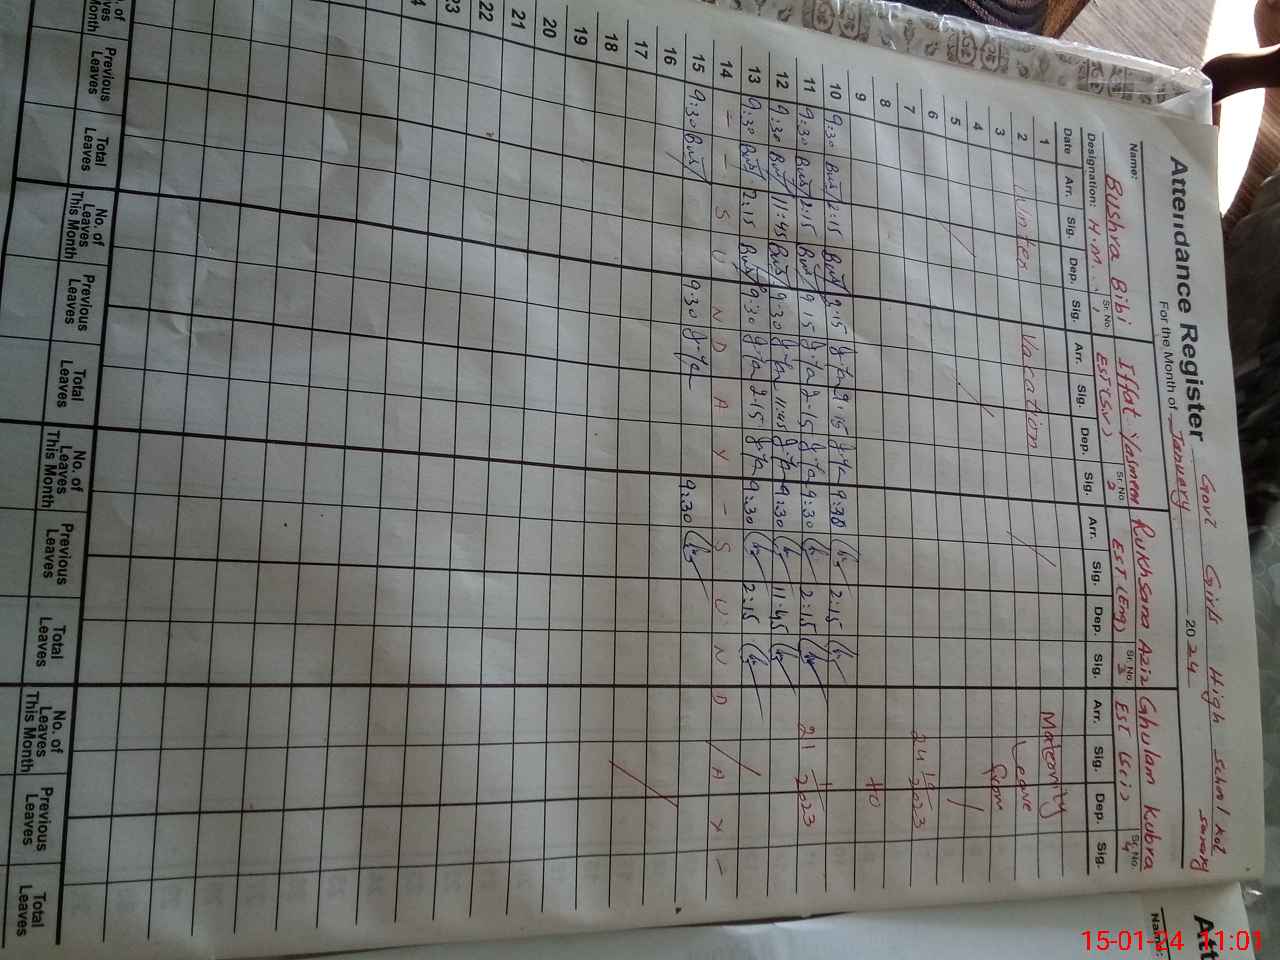 Attendance Register Govt Girls High School Kot
Sarang
For the Month of January 2024
Name: Bushra Bibi Sr. No. 1 Iffat Yasmeen Sr. No. 2 Rukhsana Aziz Sr. No. 3 Ghulam Kubra Sr. No. 4
Designation: H.M EST (Eng) EST (Sci)
Date Arr. Sig. Dep. Sig. Arr. Sig. Dep. Sig. Arr. Sig. Dep. Sig. Arr. Sig. Dep. Sig.
1 Maternity
2 Winter Vakation Leave
3 from
4
5
6
7 2023
8
9 to
10 9:30 2:15 9:15 9:15 9:30 2:15
11 9:30 2:15 9:15 2:15 9:30 2:15 21 1 2023
12 9:30 11:45 9:30 11:45 9:30 11:45
13 9:30 2:15 9:30 2:15 9:30 2:15
14 - - S U N D A Y - S U N D A Y -
15 9:30 9:30 9:30
16
17
18
19
20
21
22
23
No. of Leaves This Month Previous Leaves Total Leaves No. of Leaves This Month Previous Leaves Total Leaves No. of Leaves This Month Previous Leaves Total Leaves No. of Leaves This Month Previous Leaves Total Leaves
Att
Name:
15-01-24 11:01